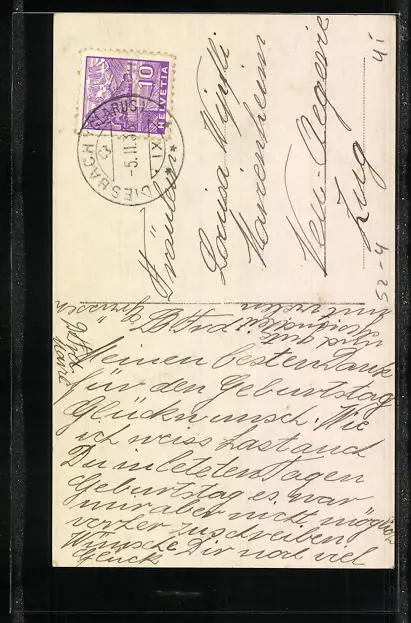 10
HELVETIA
DIESBACH (GLARUS)
-5.II.3
XI
Fräulein
Louisa Wipfli
Marienheim
Neu-Aegerie
Zug
41
52-4
Meinen besten Dank
für den Geburtstag
Glückwunsch. Wie
ich weiss hast auch
Du in letzten Tagen
Geburtstag es war
mir aber nicht möglich
vorher zu schreiben
Wünsche Dir noch viel
Glück
und gute